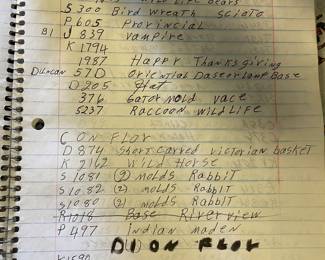 S 300 Bird Wreath Scioto
P 605 Provincial
B1 J 839 Vampire
K 1794
1987 Happy Thanksgiving
Duncan 57D Oriential Daser Lamp Base
D 205 Hat
376 Gator mold vace
5237 Raccoon wild Life
CON FLOR
D 874 Short carved Victorian basket
K 2162 Wild Horse
S 1081 (2) molds Rabbit
S 1082 (2) molds Rabbit
S 1080 (2) molds Rabbit
R1018 Base Riverview
P 497 indian maden
DION FLOR